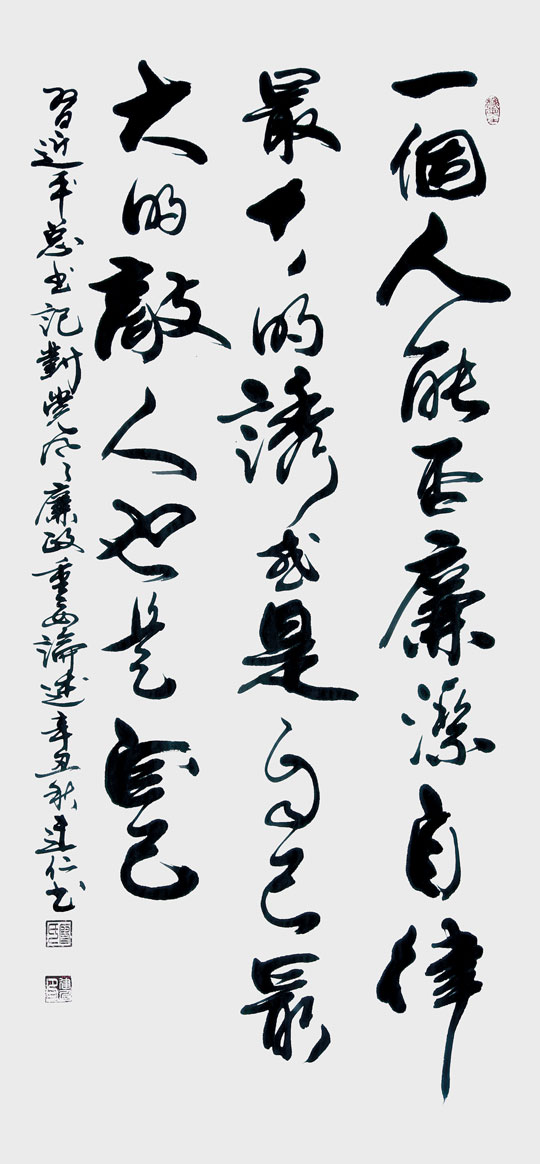 一個人能否廉潔自律
最大的誘惑是自己最
大的敵人也是自己
習近平总书記對党风廉政重要論述辛丑秋建仁书